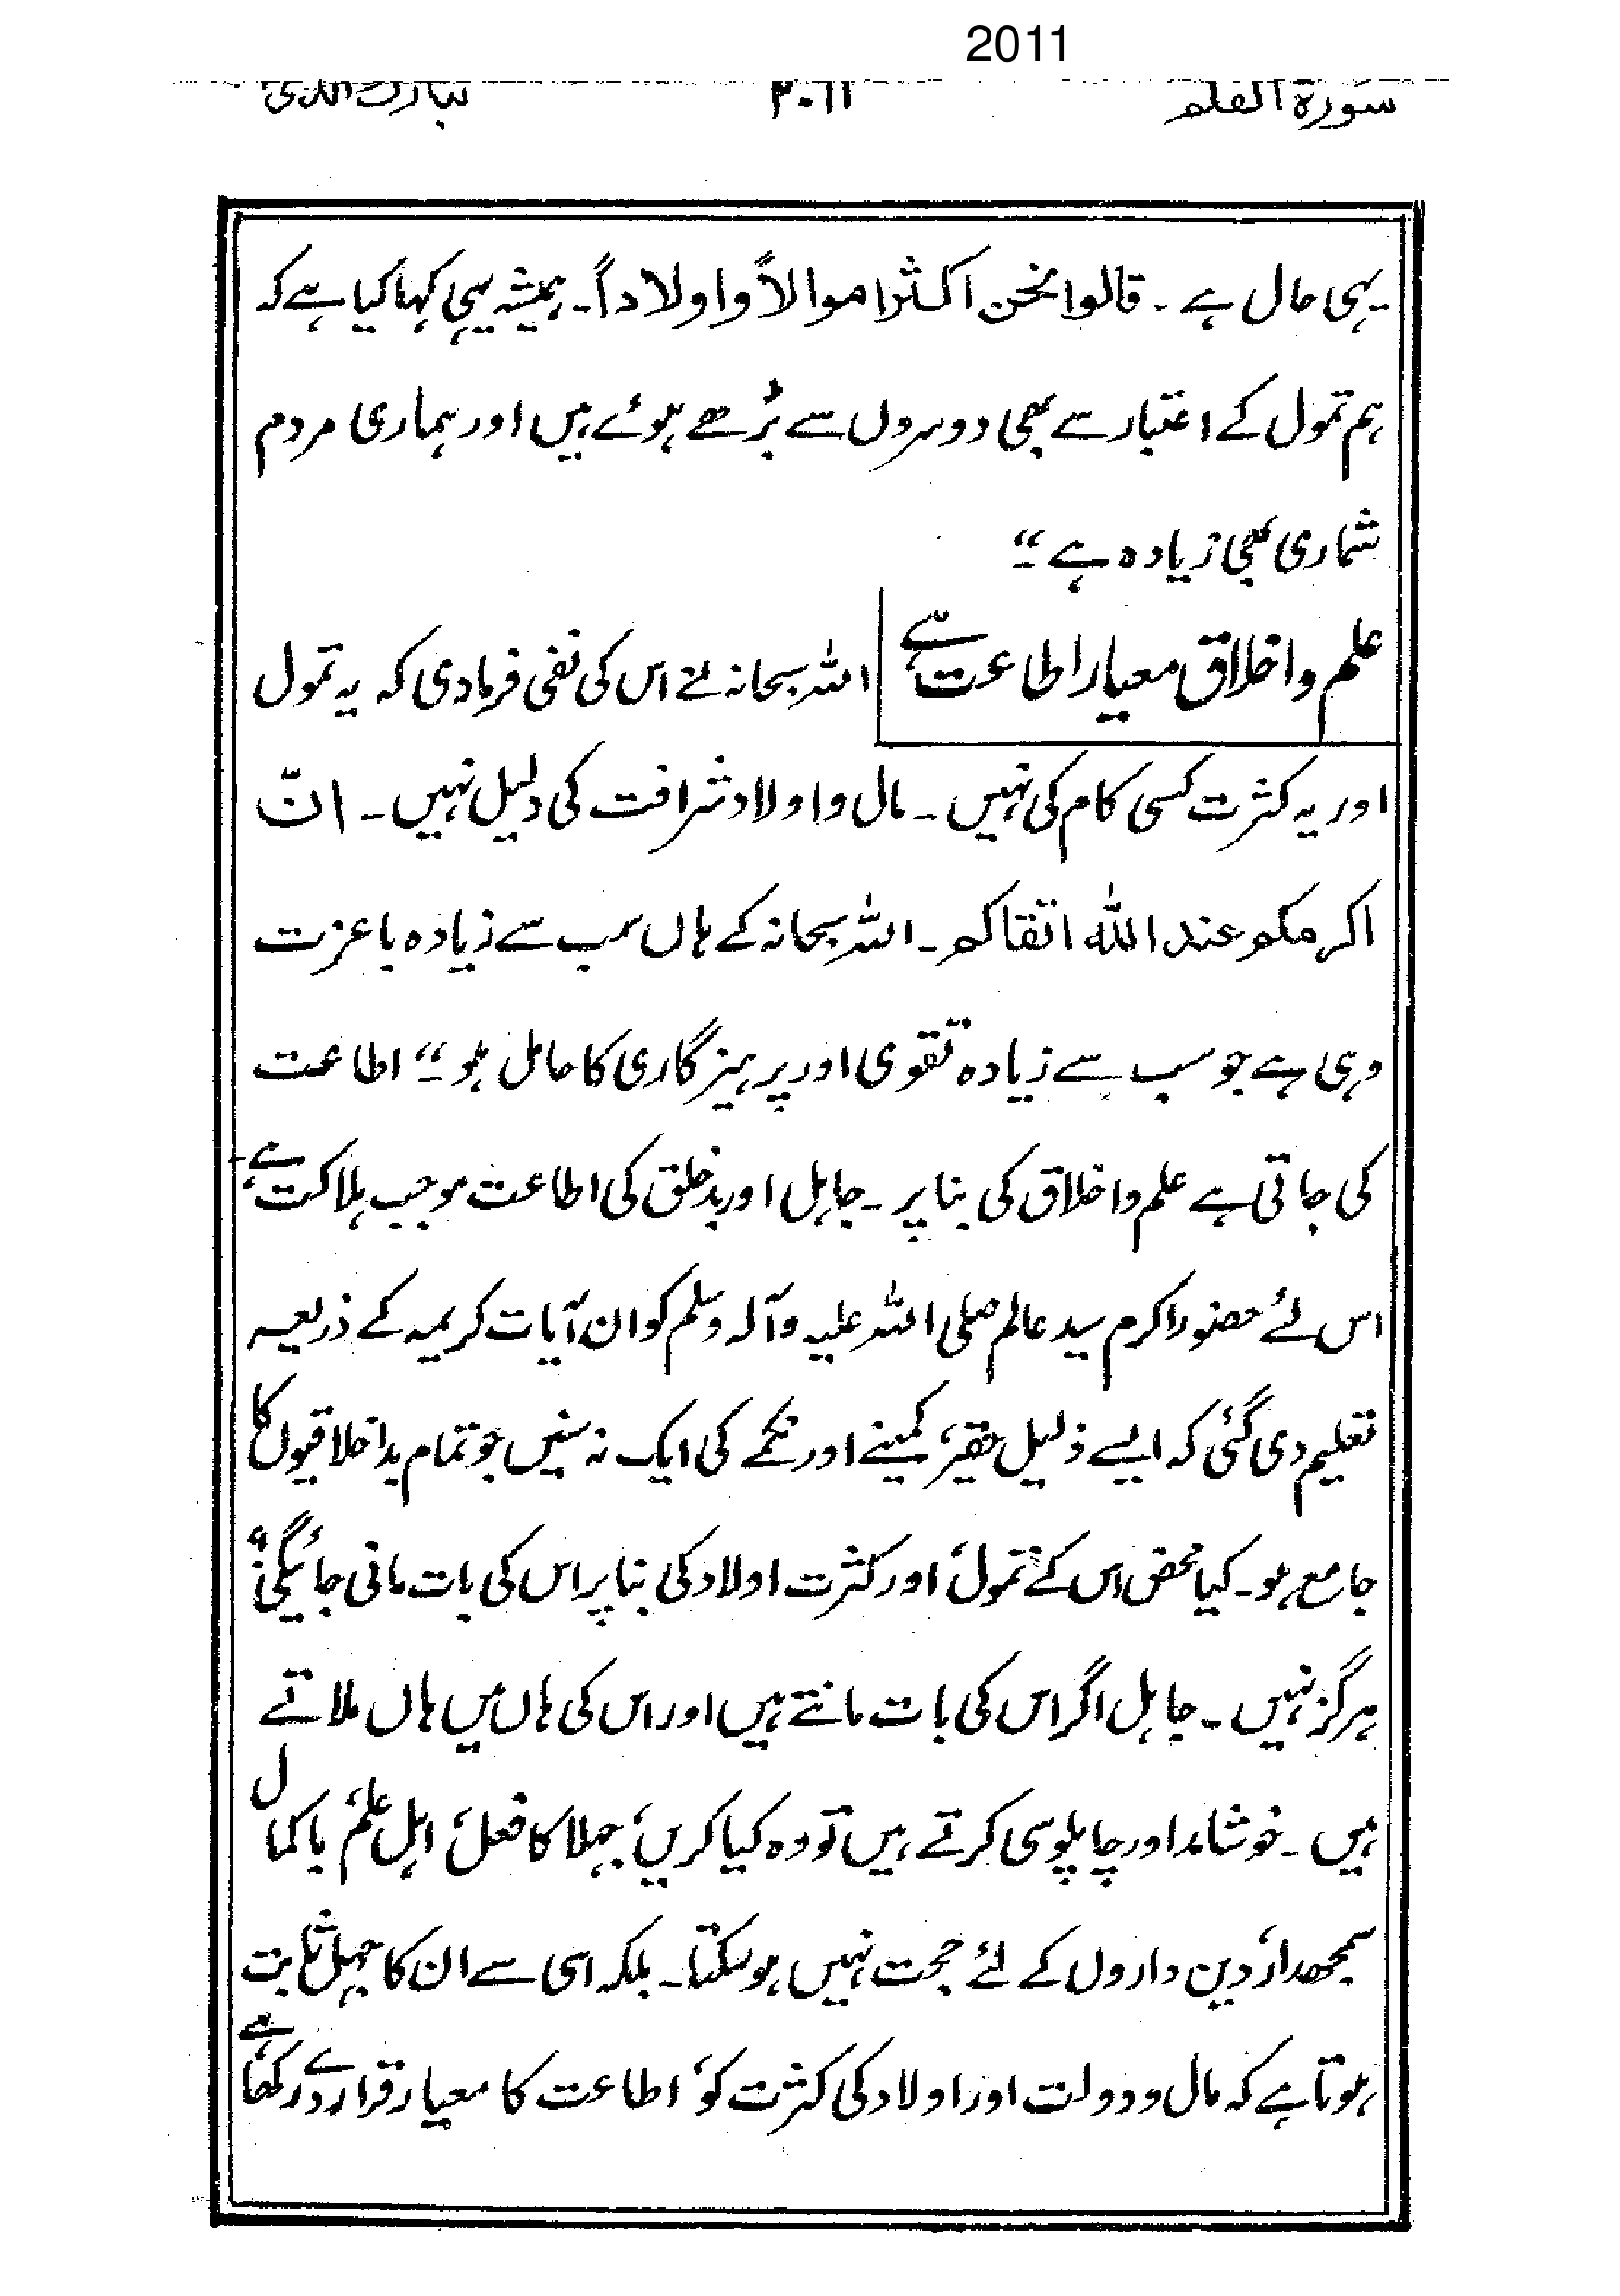 2011
سورة القلم ۲۰۱۱ تبارک الذی
یہی حال ہے ۔ قالوا نحن اکثر اموالاً و اولاداً ۔ ہمیشہ یہی کہا کیا ہے کہ
ہم تمول کے اعتبار سے بھی دوسروں سے بڑھے ہوئے ہیں اور ہماری مردم
شماری بھی زیادہ ہے ۔“
علم و اخلاق معیار اطاعت ہے اللہ سبحانہ نے اس کی نفی فرما دی کہ یہ تمول
اور یہ کثرت کسی کام کی نہیں ۔ مال و اولاد شرافت کی دلیل نہیں ۔ انّ
اکرمکم عند اللہ اتقاکم ۔ اللہ سبحانہ کے ہاں سب سے زیادہ باعزت
وہی ہے جو سب سے زیادہ تقوی اور پرہیز گاری کا حامل ہو ۔“ اطاعت
کی جاتی ہے علم و اخلاق کی بنا پر ۔ جاہل اور بدخلق کی اطاعت موجب ہلاکت ہے ۔
اس لئے حضور اکرم سید عالم صلی اللہ علیہ وآلہ وسلم کو ان آیات کریمہ کے ذریعہ
تعلیم دی گئی کہ ایسے ذلیل حقیر، کمینے اور نکمے کی ایک نہ سنیں جو تمام بداخلاقیوں کا
جامع ہو ۔ کیا محض اس کے تمول، اور کثرت اولاد کی بنا پر اس کی بات مانی جائیگی؟
ہرگز نہیں ۔ جاہل اگر اس کی بات مانتے ہیں اور اس کی ہاں میں ہاں ملاتے
ہیں ۔ خوشامد اور چاپلوسی کرتے ہیں تو وہ کیا کریں، جہلا کا فعل، اہل علم، باکمال
سمجھدار، دین داروں کے لئے حجت نہیں ہو سکتا ۔ بلکہ اسی سے ان کا جہل ثابت
ہوتا ہے کہ مال و دولت اور اولاد کی کثرت کو، اطاعت کا معیار قرار دے رکھا ہے